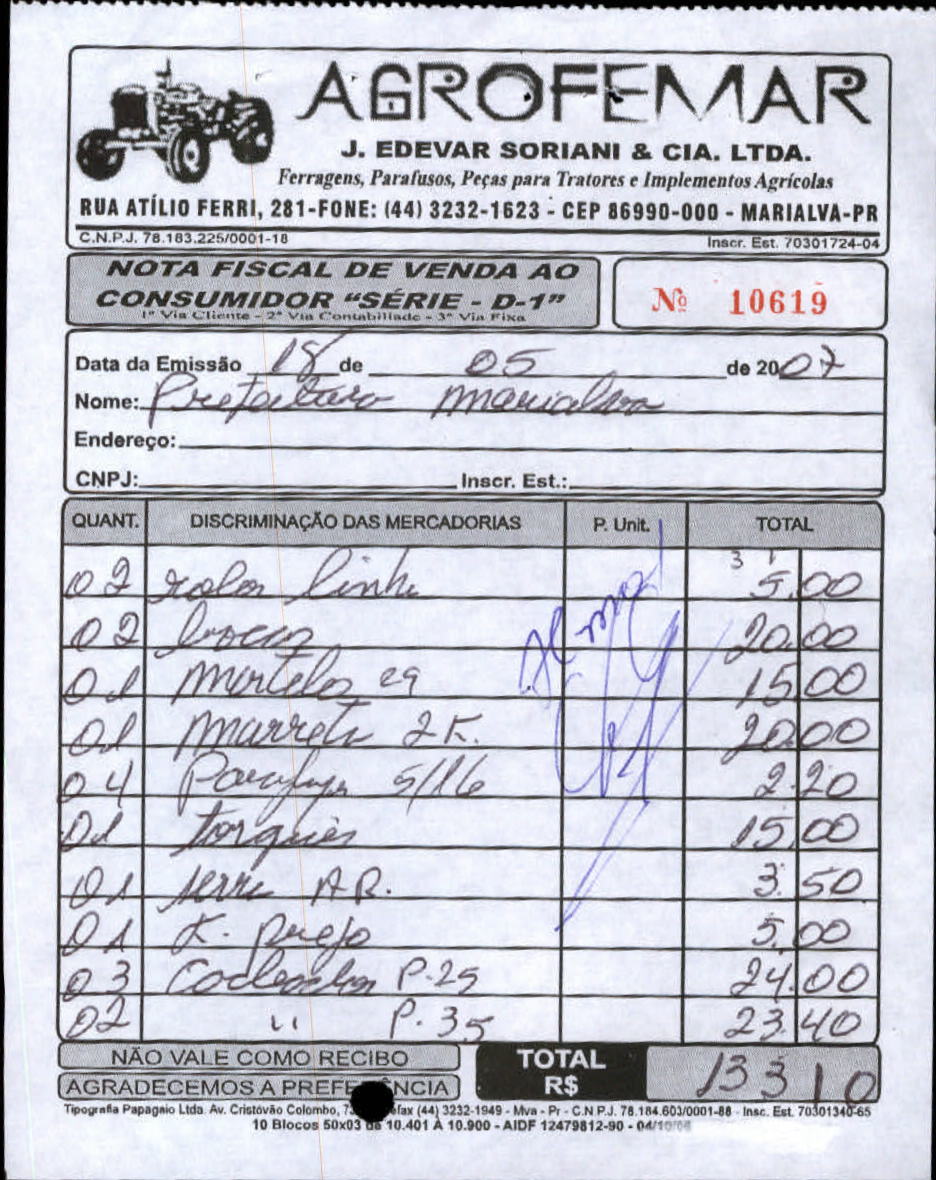 AGROFEMAR
J. EDEVAR SORIANI & CIA. LTDA.
Ferragens, Parafusos, Peças para Tratores e Implementos Agrícolas
RUA ATÍLIO FERRI, 281-FONE: (44) 3232-1623 - CEP 86990-000 - MARIALVA-PR
C.N.P.J. 78.183.225/0001-18 Inscr. Est. 70301724-04
NOTA FISCAL DE VENDA AO
CONSUMIDOR "SÉRIE - D-1"
1ª Via Cliente - 2ª Via Contabiliade - 3ª Via Fixa
Nº 10619
Data da Emissão 18 de 05 de 2007
Nome: Prefeitura Marialva
Endereço:
CNPJ: Inscr. Est.:
QUANT. DISCRIMINAÇÃO DAS MERCADORIAS P. Unit. TOTAL
3 1
02 rolos linha 5.00
02 20.00
01 Martelo 29 15.00
01 Marreta 2K. 20.00
04 Parafuso 5/16 2.20
01 torques 15.00
01 serra A.R. 3.50
01 K. prego 5.00
03 Cadeados P.25 24.00
02 " P.35 23.40
NÃO VALE COMO RECIBO
AGRADECEMOS A PREFERÊNCIA
TOTAL
R$ 133,10
Tipografia Papagaio Ltda. Av. Cristóvão Colombo, (44) 3232-1949 - Mva - Pr - C.N.P.J. 78.184.603/0001-88 - Insc. Est. 70301340-65
10 Blocos 50x03 de 10.401 À 10.900 - AIDF 12479812-90 - 04/10/